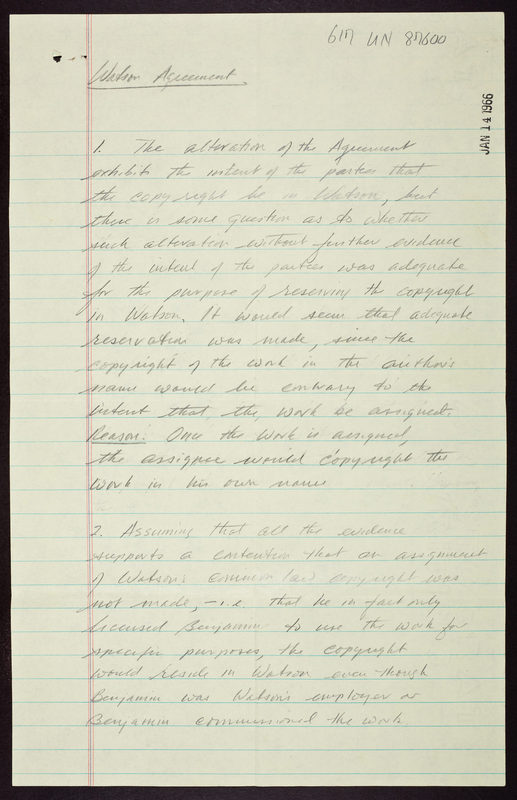 617 UN 87600
JAN 14 1966
Watson Agreement
1. The alteration of the Agreement
exhibits the intent of the parties that
the copyright be in Watson, but
there is some question as to whether
such alteration without further evidence
of the intent of the parties was adequate
for the purpose of reserving the copyright
in Watson. It would seem that adequate
reservation was made, since the
copyright of the work in the author's
name would be contrary to the
intent that the work be assigned.
Reason: Once the work is assigned,
the assignee would copyright the
work in his own name
2. Assuming that all the evidence
supports a contention that an assignment
of Watson's common law copyright was
not made, - i.e. that he in fact only
licensed Benjamin to use the work for
specific purposes, the copyright
would reside in Watson even though
Benjamin was Watson's employer or
Benjamin commissioned the work.